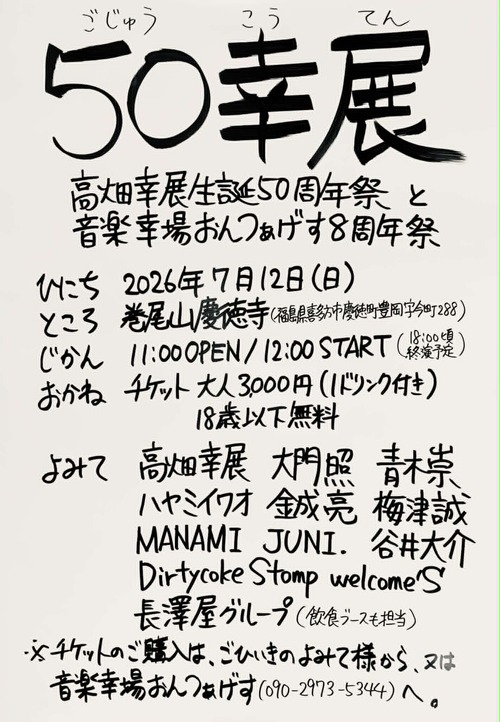 ごじゅう こう てん
50幸展
高畑幸展生誕50周年祭 と
音楽幸場おんつぁげす8周年祭
ひにち 2026年7月12日(日)
ところ 巻尾山慶徳寺(福島県喜多方市慶徳町豊岡字今町288)
じかん 11:00OPEN/12:00START(18:00頃終演予定)
おかね チケット 大人3,000円(1ドリンク付き)
18歳以下無料
よみて 高畑幸展 大門照 青木崇
ハヤミイワオ 金成亮 梅津誠
MANAMI JUNI. 谷井大介
Dirtycoke Stomp welcome'S
長澤屋グループ(飲食ブースも担当)
※チケットのご購入は、ごひいきのよみて様から、又は
音楽幸場おんつぁげす(090-2973-5344)へ。